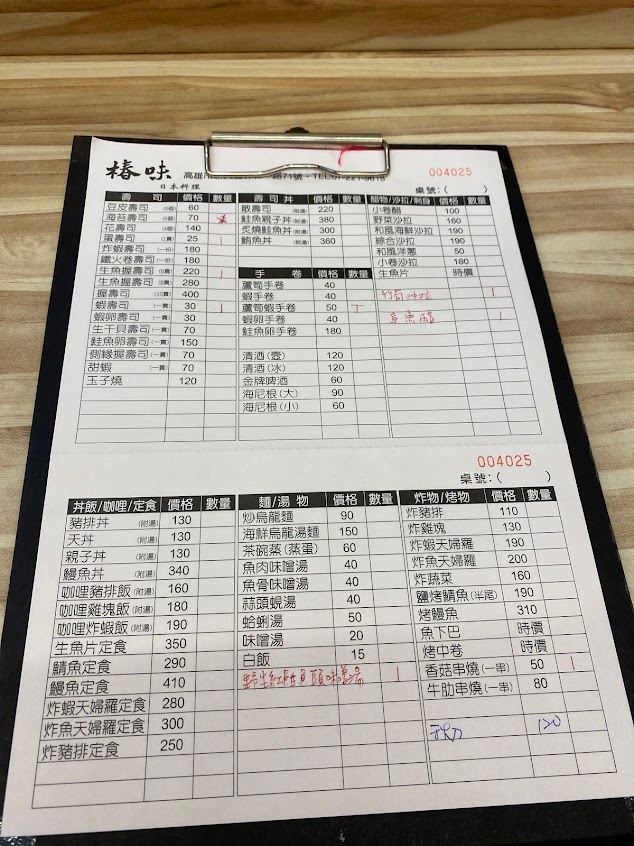 椿味
日本料理
高雄市
71號・TEL:07-221-9810
004025
桌號:( )
壽 司 價格 數量
豆皮壽司 60
海苔壽司 70
花壽司 140
蛋壽司 (1貫) 25 1
炸蝦壽司 (一份) 180
鐵火卷壽司 (一份) 180
生魚握壽司 (6貫) 220 1
生魚握壽司 (8貫) 280
握壽司 (10貫) 400
蝦壽司 (一貫) 30 1
蝦卵壽司 (一貫) 30
生干貝壽司 (一貫) 70
鮭魚卵壽司 (一貫) 150
側緣握壽司 (一貫) 70
甜蝦 (一貫) 70
玉子燒 120
壽 司 丼 價格 數量
散壽司 (附湯) 220
鮭魚親子丼 (附湯) 380
炙燒鮭魚丼 (附湯) 300
鮪魚丼 (附湯) 360
手 卷 價格 數量
蘆筍手卷 40
蝦手卷 40
蘆筍蝦手卷 50 丁
蝦卵手卷 40
鮭魚卵手卷 180
清酒(壺) 120
清酒(冰) 120
金牌啤酒 60
海尼根(大) 90
海尼根(小) 60
醋物/沙拉/刺身 價格 數量
小卷醋 100
野菜沙拉 160
和風海鮮沙拉 190
綜合沙拉 190
和風洋蔥 50
小卷沙拉 180
生魚片 時價
竹筍沙拉 1
1
004025
桌號:( )
丼飯/咖哩/定食 價格 數量
豬排丼 (附湯) 130
天丼 (附湯) 130
親子丼 (附湯) 130
鰻魚丼 (附湯) 340
咖哩豬排飯 (附湯) 160
咖哩雞塊飯 (附湯) 180
咖哩炸蝦飯 (附湯) 190
生魚片定食 350
鯖魚定食 290
鰻魚定食 410
炸蝦天婦羅定食 280
炸魚天婦羅定食 300
炸豬排定食 250
麵/湯 物 價格 數量
炒烏龍麵 90
海鮮烏龍湯麵 150
茶碗蒸(蒸蛋) 60
魚肉味噌湯 40
魚骨味噌湯 40
蒜頭蜆湯 40
蛤蜊湯 50
味噌湯 20
白飯 15
野生紅魽魚頭味噌湯 1
炸物/烤物 價格 數量
炸豬排 110
炸雞塊 130
炸蝦天婦羅 190
炸魚天婦羅 200
炸蔬菜 160
鹽烤鯖魚(半尾) 190
烤鰻魚 310
魚下巴 時價
烤中卷 時價
香菇串燒(一串) 50 1
牛肋串燒(一串) 80
120